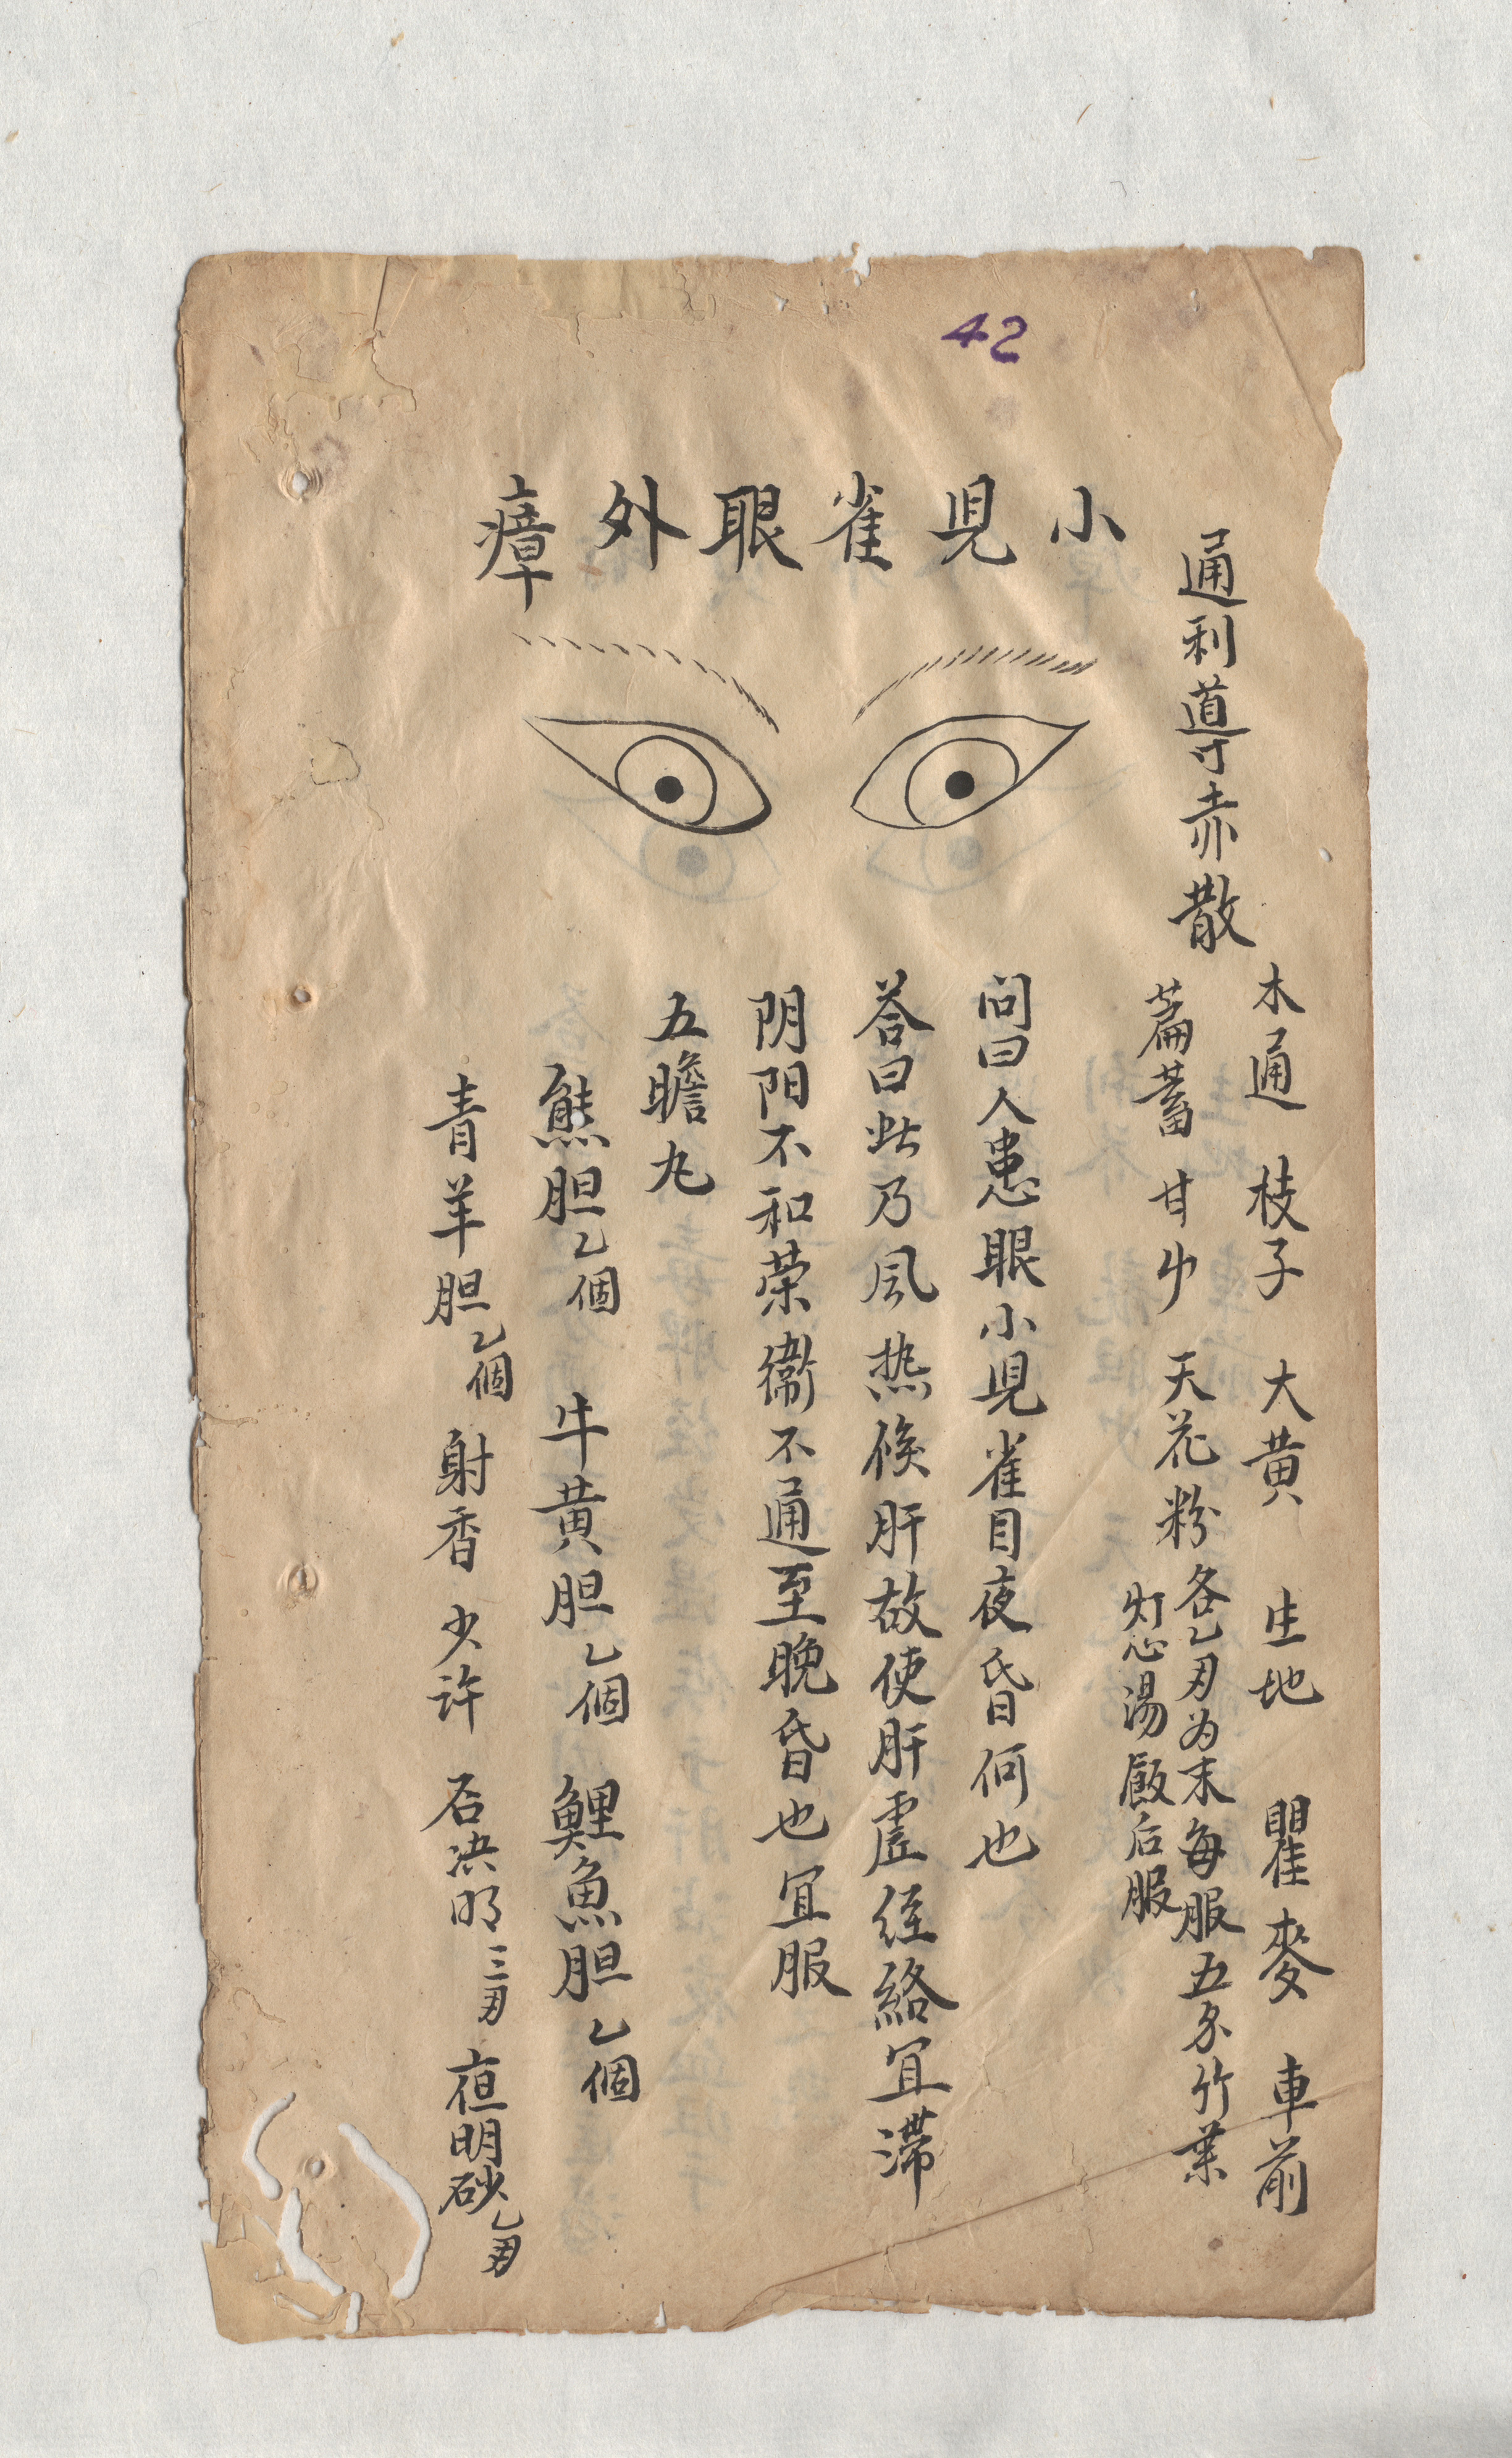 42
通利導赤散
木通 枝子 大黄 生地 瞿麥 車前
萹蓄 甘屮 天花粉 各乙刄为末每服五分竹葉
灯心湯飯后服
小児雀眼外瘴
问曰人患眼小児雀目夜昏何也
荅曰此乃风热候肝故使肝虚経絡冝滞
阴阳不和荣衞不通至晚昏也冝服
五瞻丸
熊胆乙個 牛黄胆乙個 鯉魚胆乙個
青羊胆乙個 射香少许 石决明三刄 夜明砂乙刄